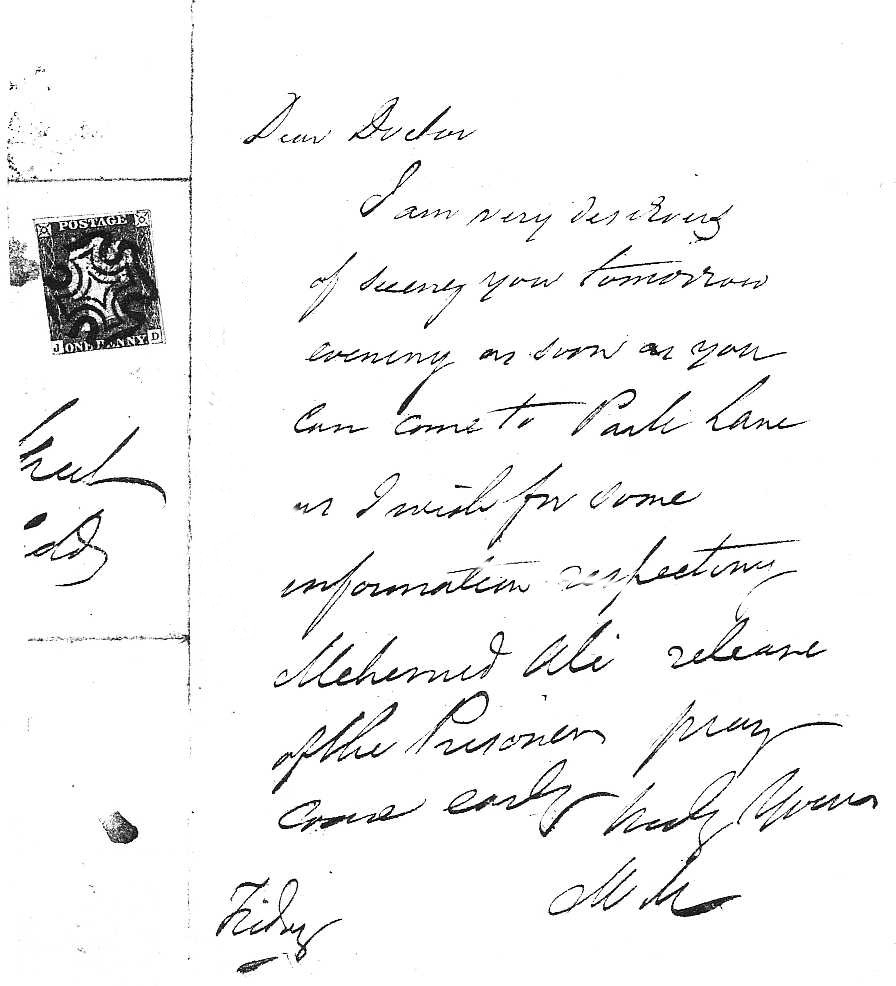 POSTAGE
J ONE PENNY D
Dear Doctor
I am very desirous
of seeing you tomorrow
evening as soon as you
can come to Park Lane
as I wish for some
information respecting
Mehemed Ali release
of the Prisoners pray
come early truly yours
M M
Friday